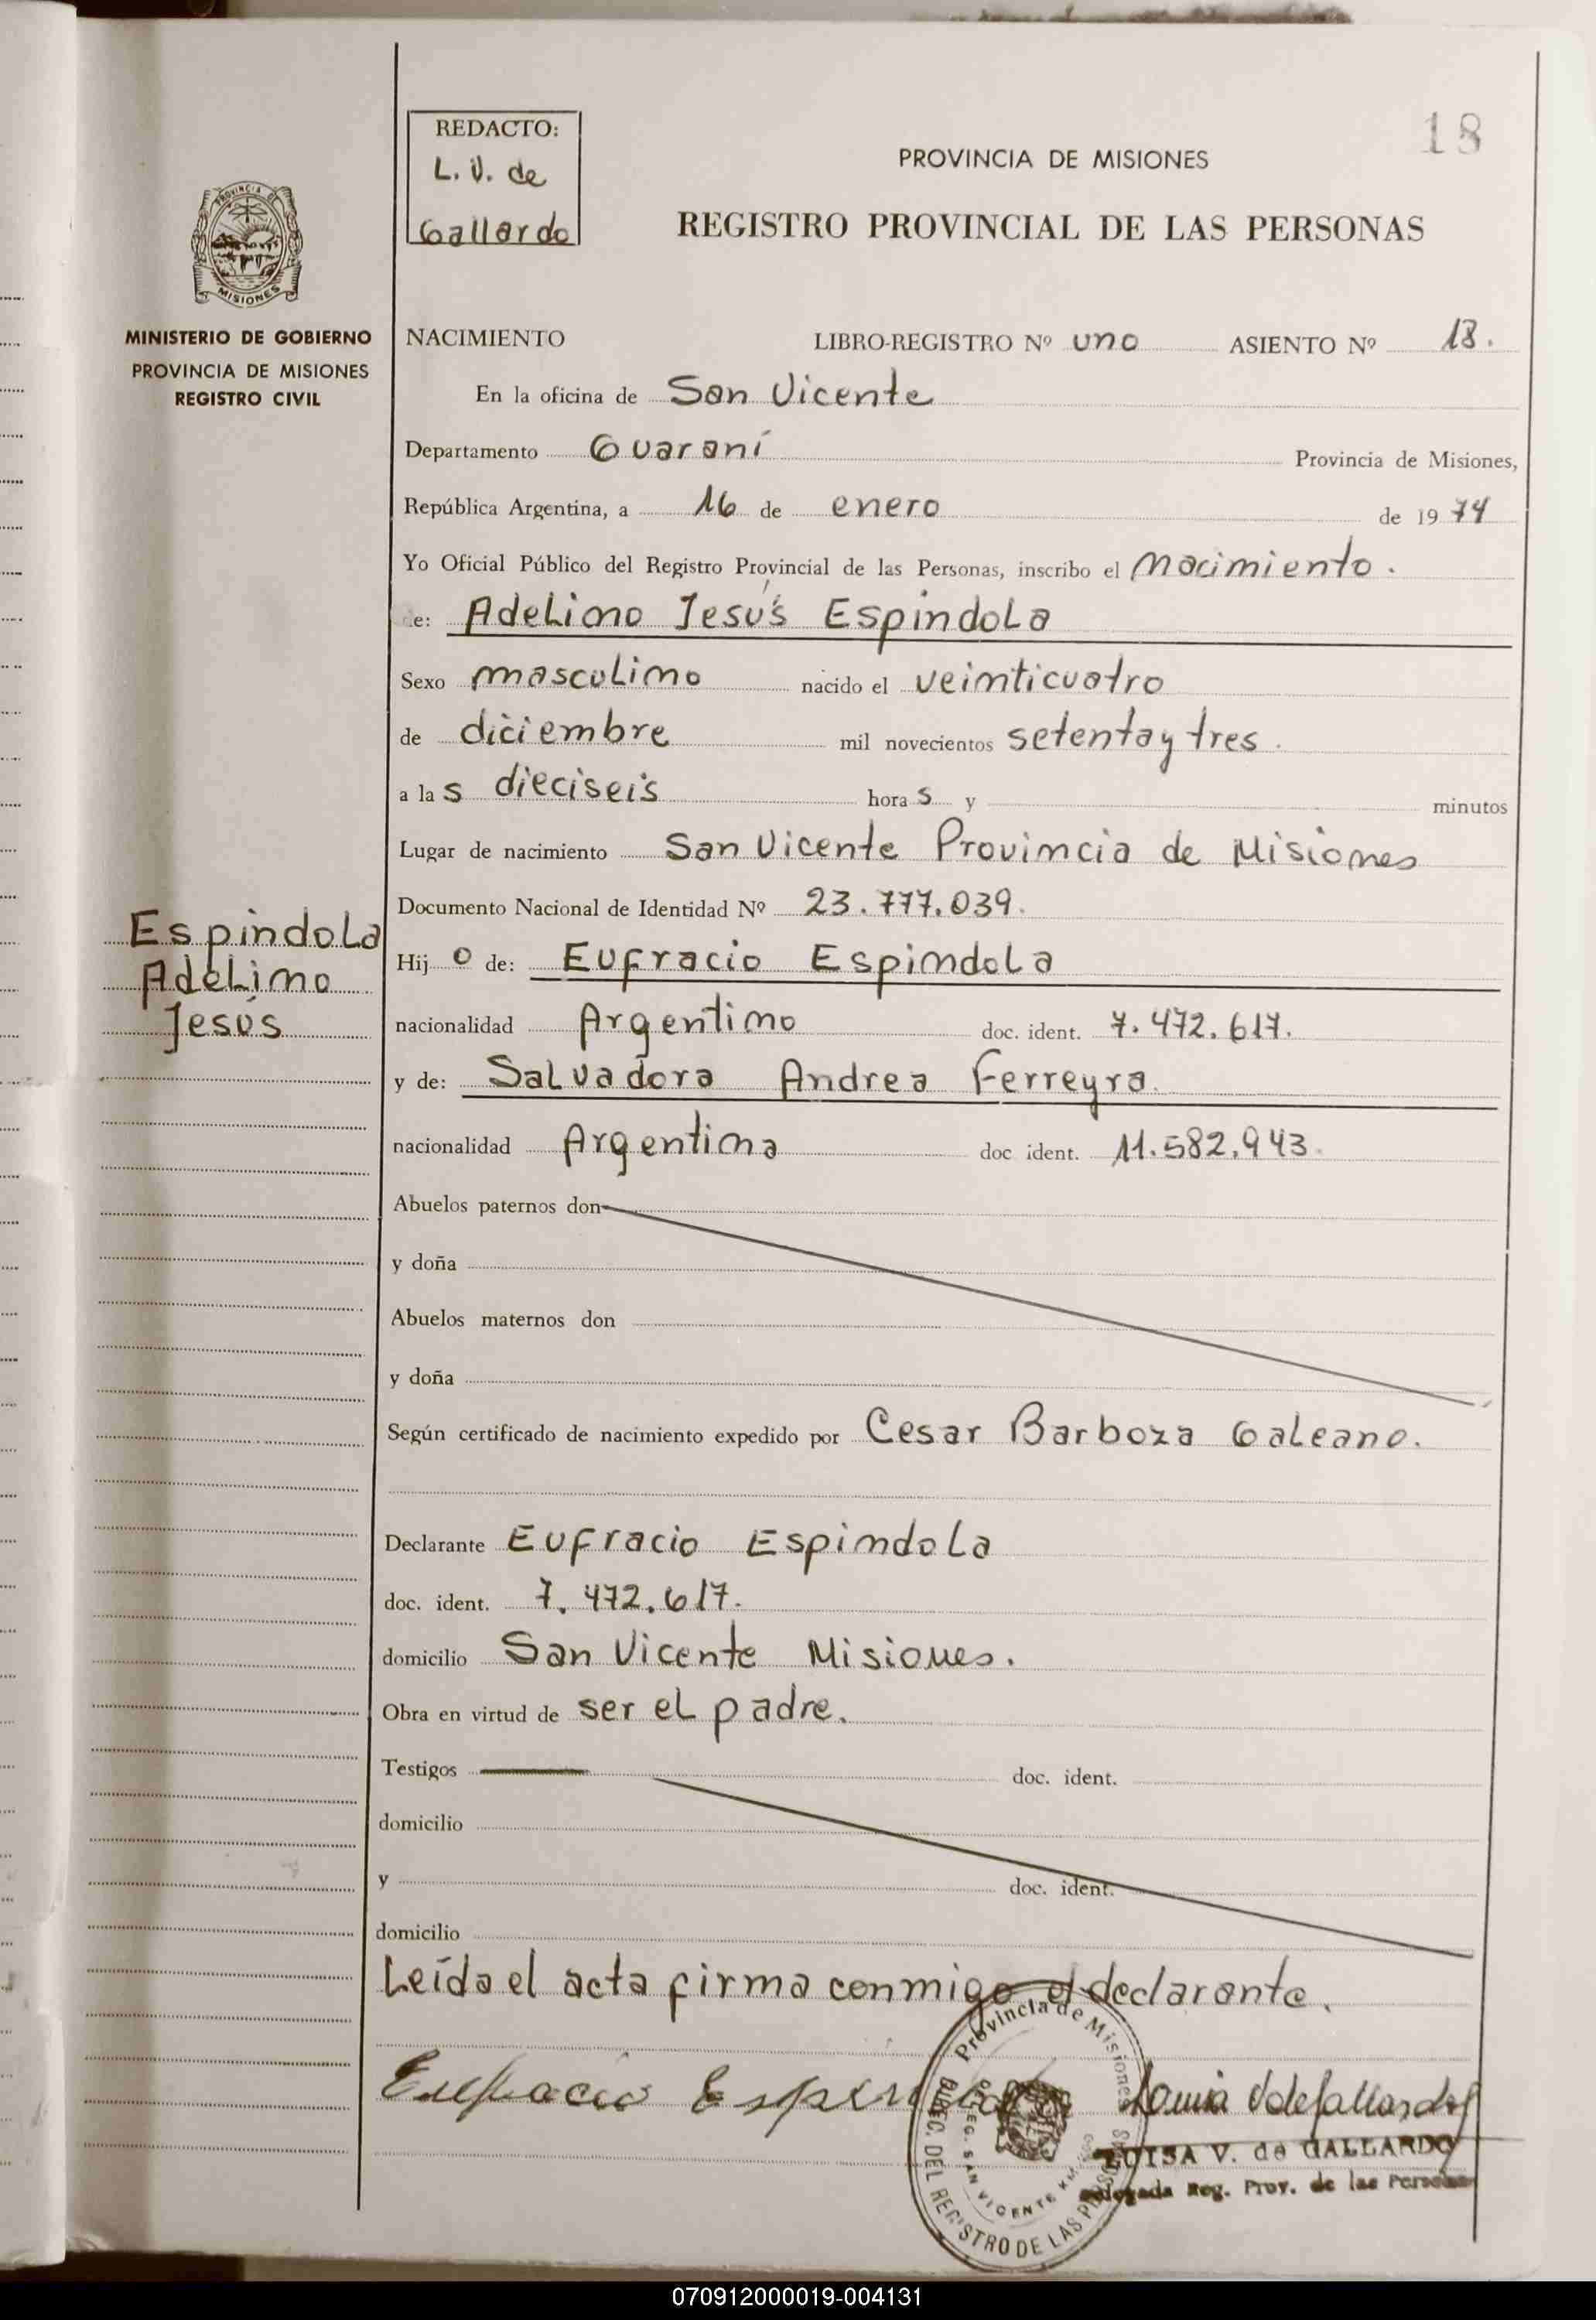 18
REDACTO:
L. V. de
Gallardo
PROVINCIA DE MISIONES
REGISTRO PROVINCIAL DE LAS PERSONAS
PROVINCIA DE
MISIONES
MINISTERIO DE GOBIERNO
PROVINCIA DE MISIONES
REGISTRO CIVIL
NACIMIENTO LIBRO-REGISTRO Nº uno ASIENTO Nº 18.
En la oficina de San Vicente
Departamento Guaraní Provincia de Misiones,
República Argentina, a 16 de enero de 1974
Yo Oficial Público del Registro Provincial de las Personas, inscribo el nacimiento.
de: Adelino Jesús Espíndola
Sexo masculino nacido el veinticuatro
de diciembre mil novecientos setenta y tres.
a las dieciseis horas y minutos
Lugar de nacimiento San Vicente Provincia de Misiones
Documento Nacional de Identidad Nº 23.777.039.
Espíndola
Adelino
Jesús
Hijo de: Eufracio Espíndola
nacionalidad Argentino doc. ident. 7.472.617.
y de: Salvadora Andrea Ferreyra.
nacionalidad Argentina doc ident. 11.582.943.
Abuelos paternos don
y doña
Abuelos maternos don
y doña
Según certificado de nacimiento expedido por Cesar Barboza Galeano.
Declarante Eufracio Espindola
doc. ident. 7.472.617.
domicilio San Vicente Misiones.
Obra en virtud de ser el padre.
Testigos doc. ident.
domicilio
y doc. ident.
domicilio
Leída el acta firma conmigo el declarante.
Eufracio Espindola
Provincia de Misiones
DIREC. DEL REGISTRO DE LAS PERSONAS
DELEG. SAN VICENTE KM.
LUISA V. de GALLARDO
Delegada Reg. Prov. de las Personas
070912000019-004131